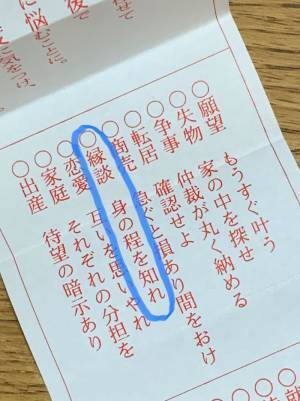 せて
後で
に悩むことに
に気をつけ、
○願望 もうすぐ叶う
○失物 家の中を探せ
○争事 仲裁が丸く納める
○転居 確認せよ
○商売 急ぐと損あり間をおけ
○縁談 身の程を知れ
○恋愛 互いを思いやれ
○家庭 それぞれの分担を
○出産 待望の暗示あり